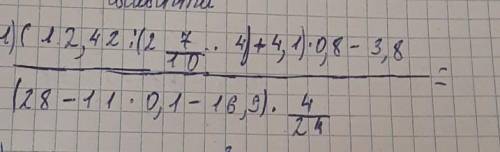 1) ( 12,42 : (2 7/10 · 4) + 4,1) · 0,8 - 3,8
=
(28 - 11 · 0,1 - 16,9) · 4/24